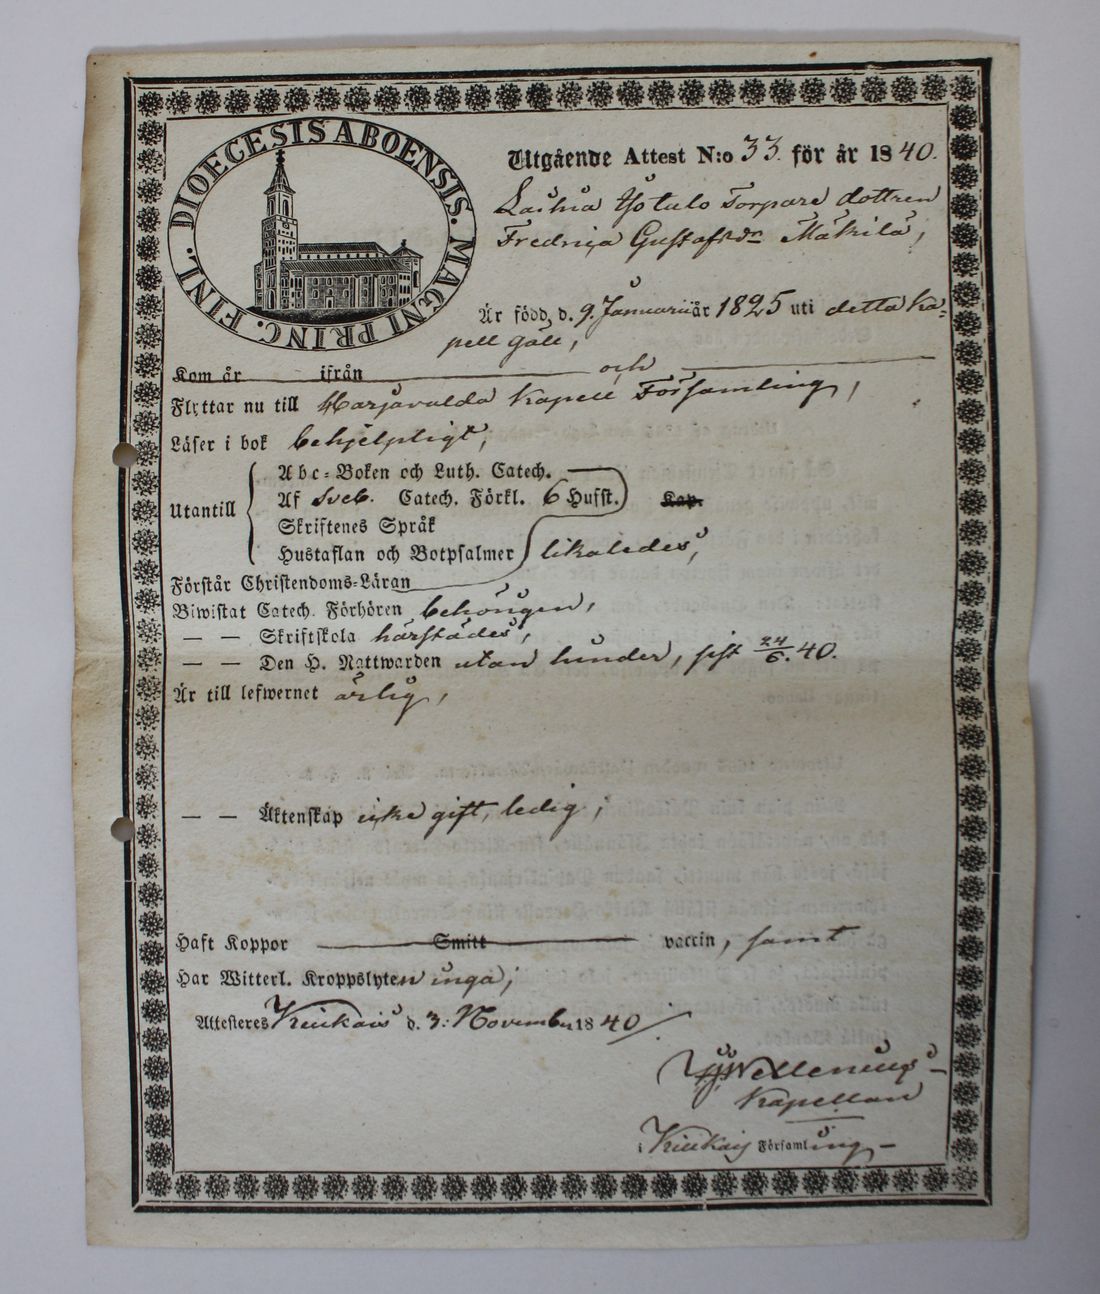 DIOECESIS ABOENSIS. MAGNI PRINC. FINL.
Utgående Attest N:o 33. för år 1840.
Torpare dottren
Fredrica Gustafsdr Mäkilä,
Är född d. 9. Januarii år 1825 uti detta Ka-
pell Gäll,
Kom år ifrån och
Flyttar nu till Harjavalda Kapell Församling,
Läser i bok behjelpligt,
Abc-Boken och Luth. Catech.
Utantill Af Sveb. Catech. Förkl. 6 Hufst. Kap.
Skriftenes Språk
Hustaflan och Botpsalmer likaledes,
Förstår Christendoms-Läran
Biwistat Catech. Förhören behörigen,
— — Skriftskola härstädes,
— — Den H. Nattwarden utan hinder, sist 24/6. 40.
Är till lefwernet ärlig,
— — Äktenskap icke gift, ledig,
Haft Koppor Smitt vaccin, samt
Har Witterl. Kroppslyten inga,
Attesteres Kiukais d. 3. November 1840
Wellenius
Kapellan
i Kiukais Församling